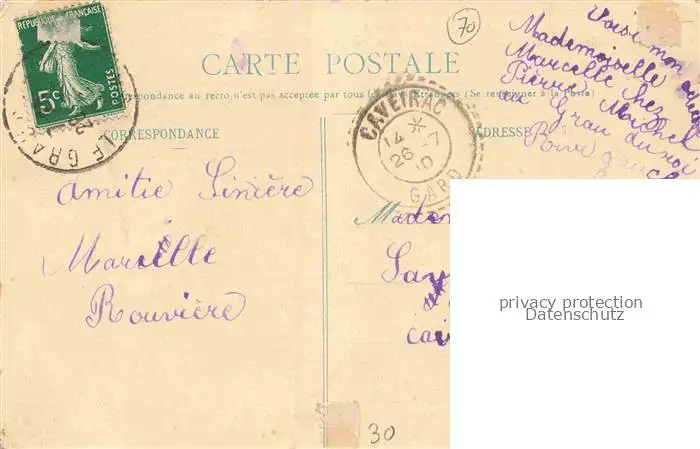 REPUBLIQUE FRANÇAISE
POSTES
5c
LE GRAU
70
CARTE POSTALE
Correspondance au recto, n'est pas acceptée par tous les pays étrangers (Se renseigner à la Poste)
CORRESPONDANCE
ADRESSE
CAVEIRAC
14 *
26 -7
10
GARD
Voisi mon
Mademoiselle
Marcelle chez
Pierre Michel
au Grau du roi
Rive gauche
amitie Sinière
Marcelle
Rouvière
Madem
Sav
cai
privacy protection
Datenschutz
30